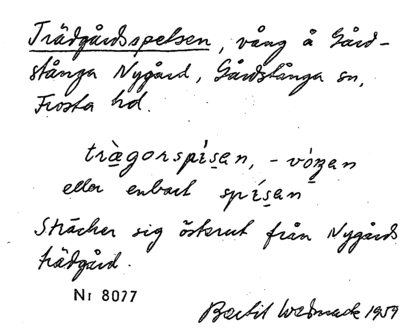 Trädgårdsspelsen, vång å Gård-
stånga Nygård, Gårdstånga sn,
Frosta hd.
trägorspisen, -vóŋen
eller enbart spísen
Sträcker sig österut från Nygårds
trädgård.
Nr 8077
Bertil 1959